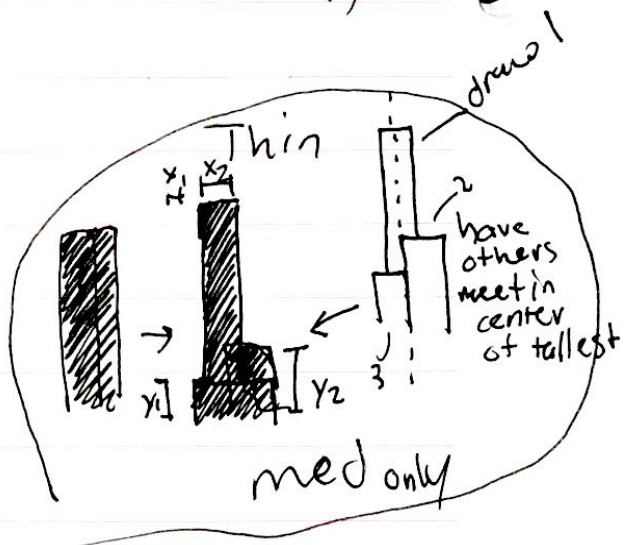 Thin
draw 1
x1 x2
2
have
others
meet in
center
of tallest
y1
y2
3
med only